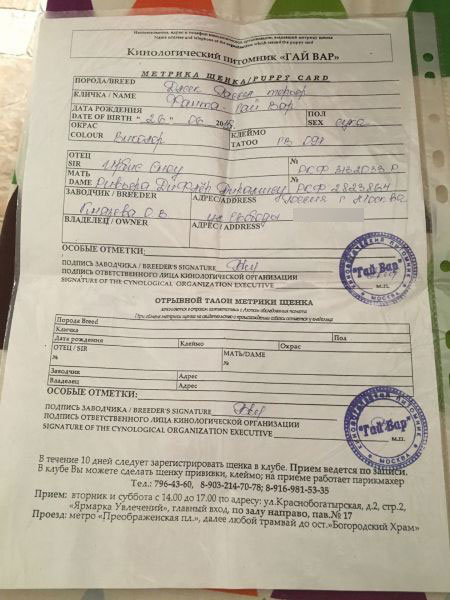 Наименование, адрес и телефон кинологической организации, выдавшей метрику щенка
Name address and telephone of the organization which issued the puppy card
Кинологический питомник «ГАЙ ВАР»
МЕТРИКА ЩЕНКА/PUPPY CARD
ПОРОДА/BREED Джек Рассел терьер
КЛИЧКА / NAME Фанта-Гай Вар
ДАТА РОЖДЕНИЯ
DATE OF BIRTH "26" 06 20
ПОЛ
SEX сука
ОКРАС
COLOUR Биколор
КЛЕЙМО
TATOO
ОТЕЦ
SIR
№ РКФ 3132033 Р
МАТЬ
DAME
№ РКФ 2823864
ЗАВОДЧИК / BREEDER
АДРЕС/ADDRESS Россия г Москва
ул Свободы
ВЛАДЕЛЕЦ / OWNER
АДРЕС / ADDRESS
ОСОБЫЕ ОТМЕТКИ:
ПОДПИСЬ ЗАВОДЧИКА / BREEDER'S SIGNATURE
ПОДПИСЬ ОТВЕТСТВЕННОГО ЛИЦА КИНОЛОГИЧЕСКОЙ ОРГАНИЗАЦИИ
SIGNATURE OF THE CYNOLOGICAL ORGANIZATION EXECUTIVE
М.П.
КИНОЛОГИЧЕСКИЙ ПИТОМНИК
"Гай Вар"
МОСКВА
ОТРЫВНОЙ ТАЛОН МЕТРИКИ ЩЕНКА
Порода Breed
Кличка
Дата рождения Клеймо Окрас Пол
ОТЕЦ / SIR МАТЬ/DAME
№ №
Заводчик Адрес
Владелец Адрес
ОСОБЫЕ ОТМЕТКИ:
ПОДПИСЬ ЗАВОДЧИКА / BREEDER'S SIGNATURE
ПОДПИСЬ ОТВЕТСТВЕННОГО ЛИЦА КИНОЛОГИЧЕСКОЙ ОРГАНИЗАЦИИ
SIGNATURE OF THE CYNOLOGICAL ORGANIZATION EXECUTIVE
М.П.
КИНОЛОГИЧЕСКИЙ ПИТОМНИК
"Гай Вар"
МОСКВА
В течение 10 дней следует зарегистрировать щенка в клубе. Прием ведется по записи.
В клубе Вы можете сделать щенку прививки, клеймо; на приёме работает парикмахер
Тел.: 796-43-60, 8-903-214-70-78; 8-916-981-53-35
Прием: вторник и суббота с 14.00 до 17.00 (по адресу: ул.Краснобогатырская, д.2, стр.2,
«Ярмарка Увлечений», главный вход, по залу направо, пав.№ 17
Проезд: метро «Преображенская пл.», далее любой трамвай до ост.»Богородский Храм»